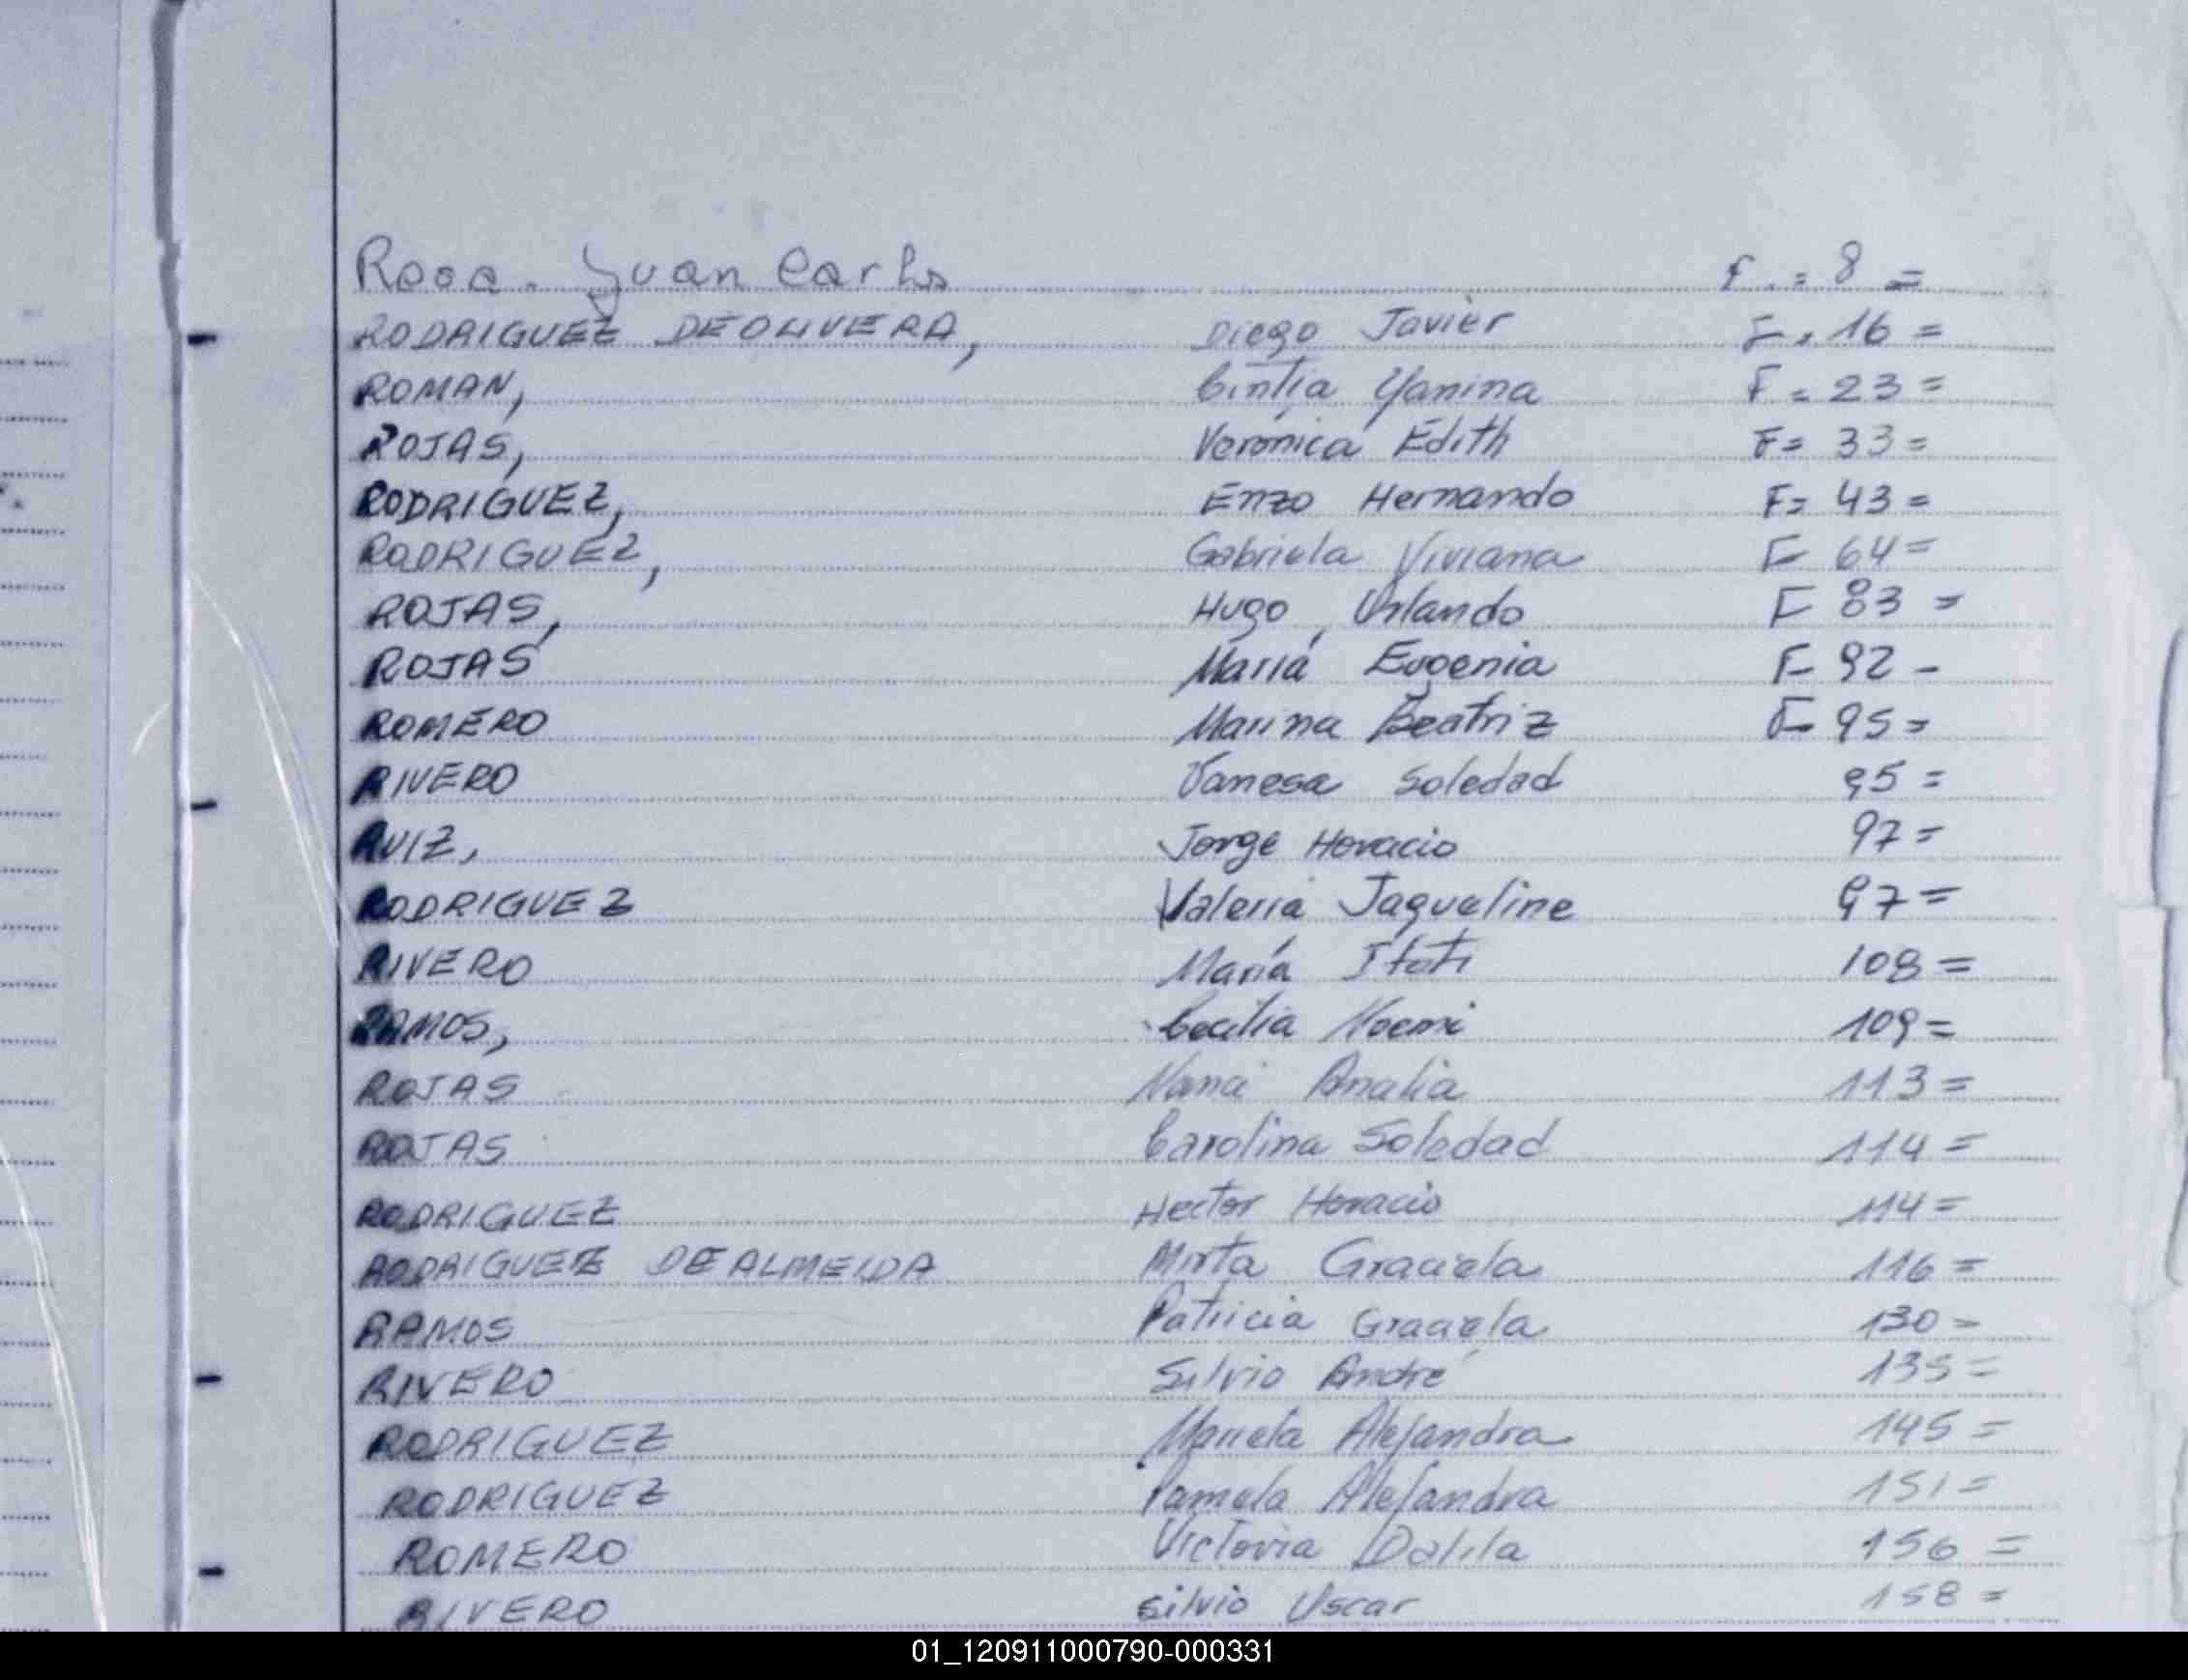 Rosa. Juan Carlos F. = 8 =
RODRIGUEZ DE OLIVERA, Diego Javier F. 16 =
ROMAN, Cintia Yanina F = 23 =
ROJAS, Veronica Edith F= 33 =
RODRIGUEZ, Enzo Hernando F= 43 =
RODRIGUEZ, Gabriela Viviana F 64 =
ROJAS, Hugo, Orlando F 83 =
ROJAS María Eugenia F 92 -
ROMERO Marina Beatriz F 95 =
RIVERO Vanesa Soledad 95 =
RUIZ, Jorge Horacio 97 =
RODRIGUEZ Valeria Jaqueline 97 =
RIVERO María Itati 108 =
RAMOS, Cecilia Noemi 109 =
ROJAS Nanci Analia 113 =
ROJAS Carolina Soledad 114 =
RODRIGUEZ Hector Horacio 114 =
RODRIGUEZ DE ALMEIDA Mirta Graciela 116 =
RAMOS Patricia Graciela 130 =
RIVERO Silvio André 135 =
RODRIGUEZ Mariela Alejandra 145 =
RODRIGUEZ Pamela Alejandra 151 =
ROMERO Victoria Dalila 156 =
RIVERO Silvio Oscar 158 =
01_120911000790-000331